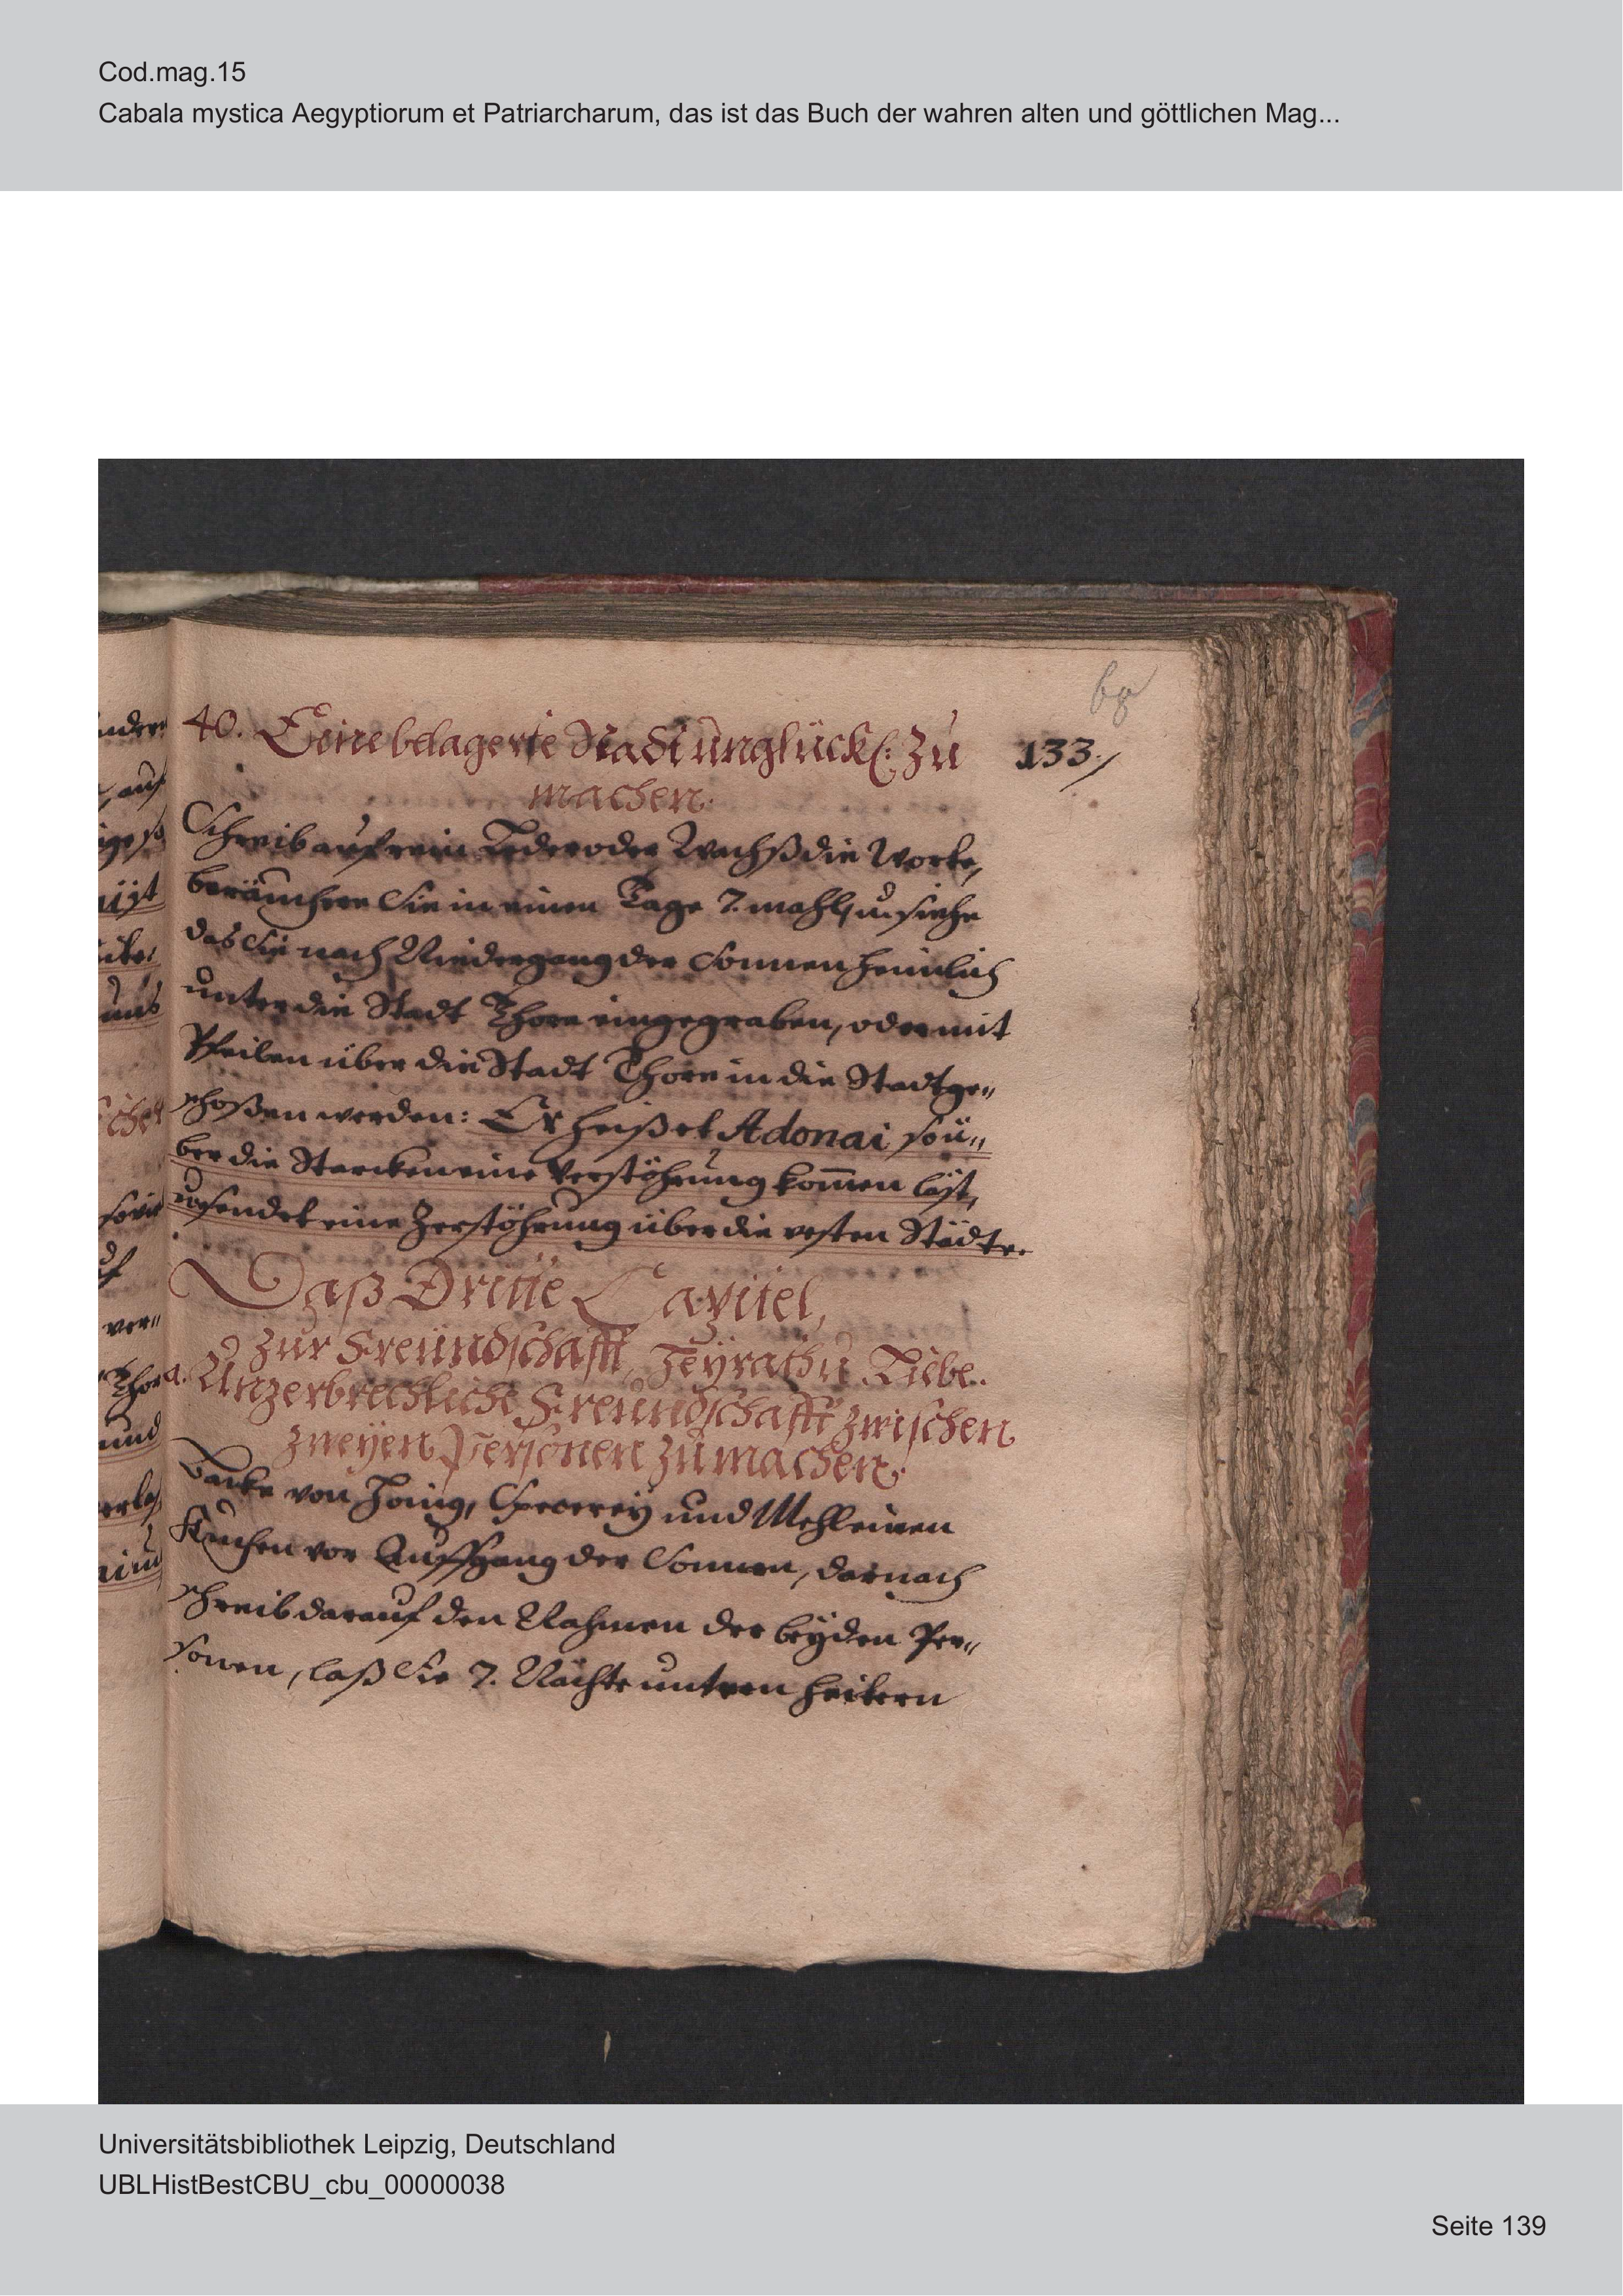 Cod.mag.15
Cabala mystica Aegyptiorum et Patriarcharum, das ist das Buch der wahren alten und göttlichen Mag...
40. Eine belagerte Stadt unglückl: zu
133./
machen.
Schreib auf rein Leder oder Wachß die Worte,
beräuchere Sie in einen Tage 7. mahl, u. siehe
das Sie nach Niedergang der Sonnen heimlich
unter die Stadt Thore eingegraben, oder mit
Pfeilen über die Stadt Thore in die Stadt ge„
schoßen werden: Er heißet Adonai so ü„
ber die Starcken eine Verstöhrung kom̄en läst,
u. sendet eine Zerstöhrung über die vesten Städte.
Daß Dritte Capitel,
zur Freündschafft, Heÿrath u Liebe.
a. Unzerbrechliche Freündschafft zwischen
zweÿen Personen zu machen.
Backe von Honig, Specereÿ und Mehl einen
Kuchen vor Auffgang der Sonnen, darnach
schreib darauf den Nahmen der beÿden Per„
sonen, laß Sie 7. Nächte untern heitern
Universitätsbibliothek Leipzig, Deutschland
UBLHistBestCBU_cbu_00000038
Seite 139